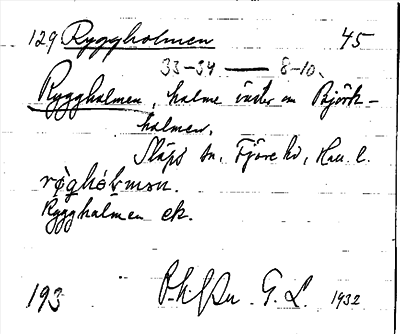 129 Ryggholmen 45
33-34 — 8-10.
Ryggholmen, holme öster om Björk-
holmen.
Släps sn, Fjäre hd, Hall. l.
Ryggholmen ek.
193 G. L. 1932